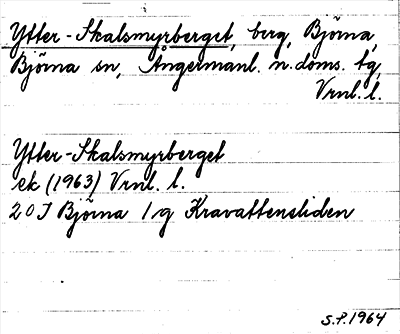 Ytter-Skalsmyrberget, berg, Björna,
Björna sn, Ångermanl. n. doms. tg,
Vrnl. l.
Ytter-Skalsmyrberget
ek (1963) Vrnl. l.
20 J Björna 1/g Kravattensliden
S.P. 1964